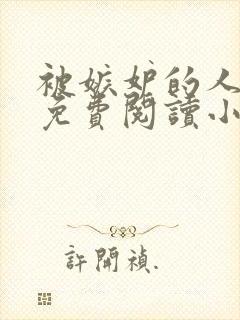 被嫉妒的人
免費閱讀小
許開禎.